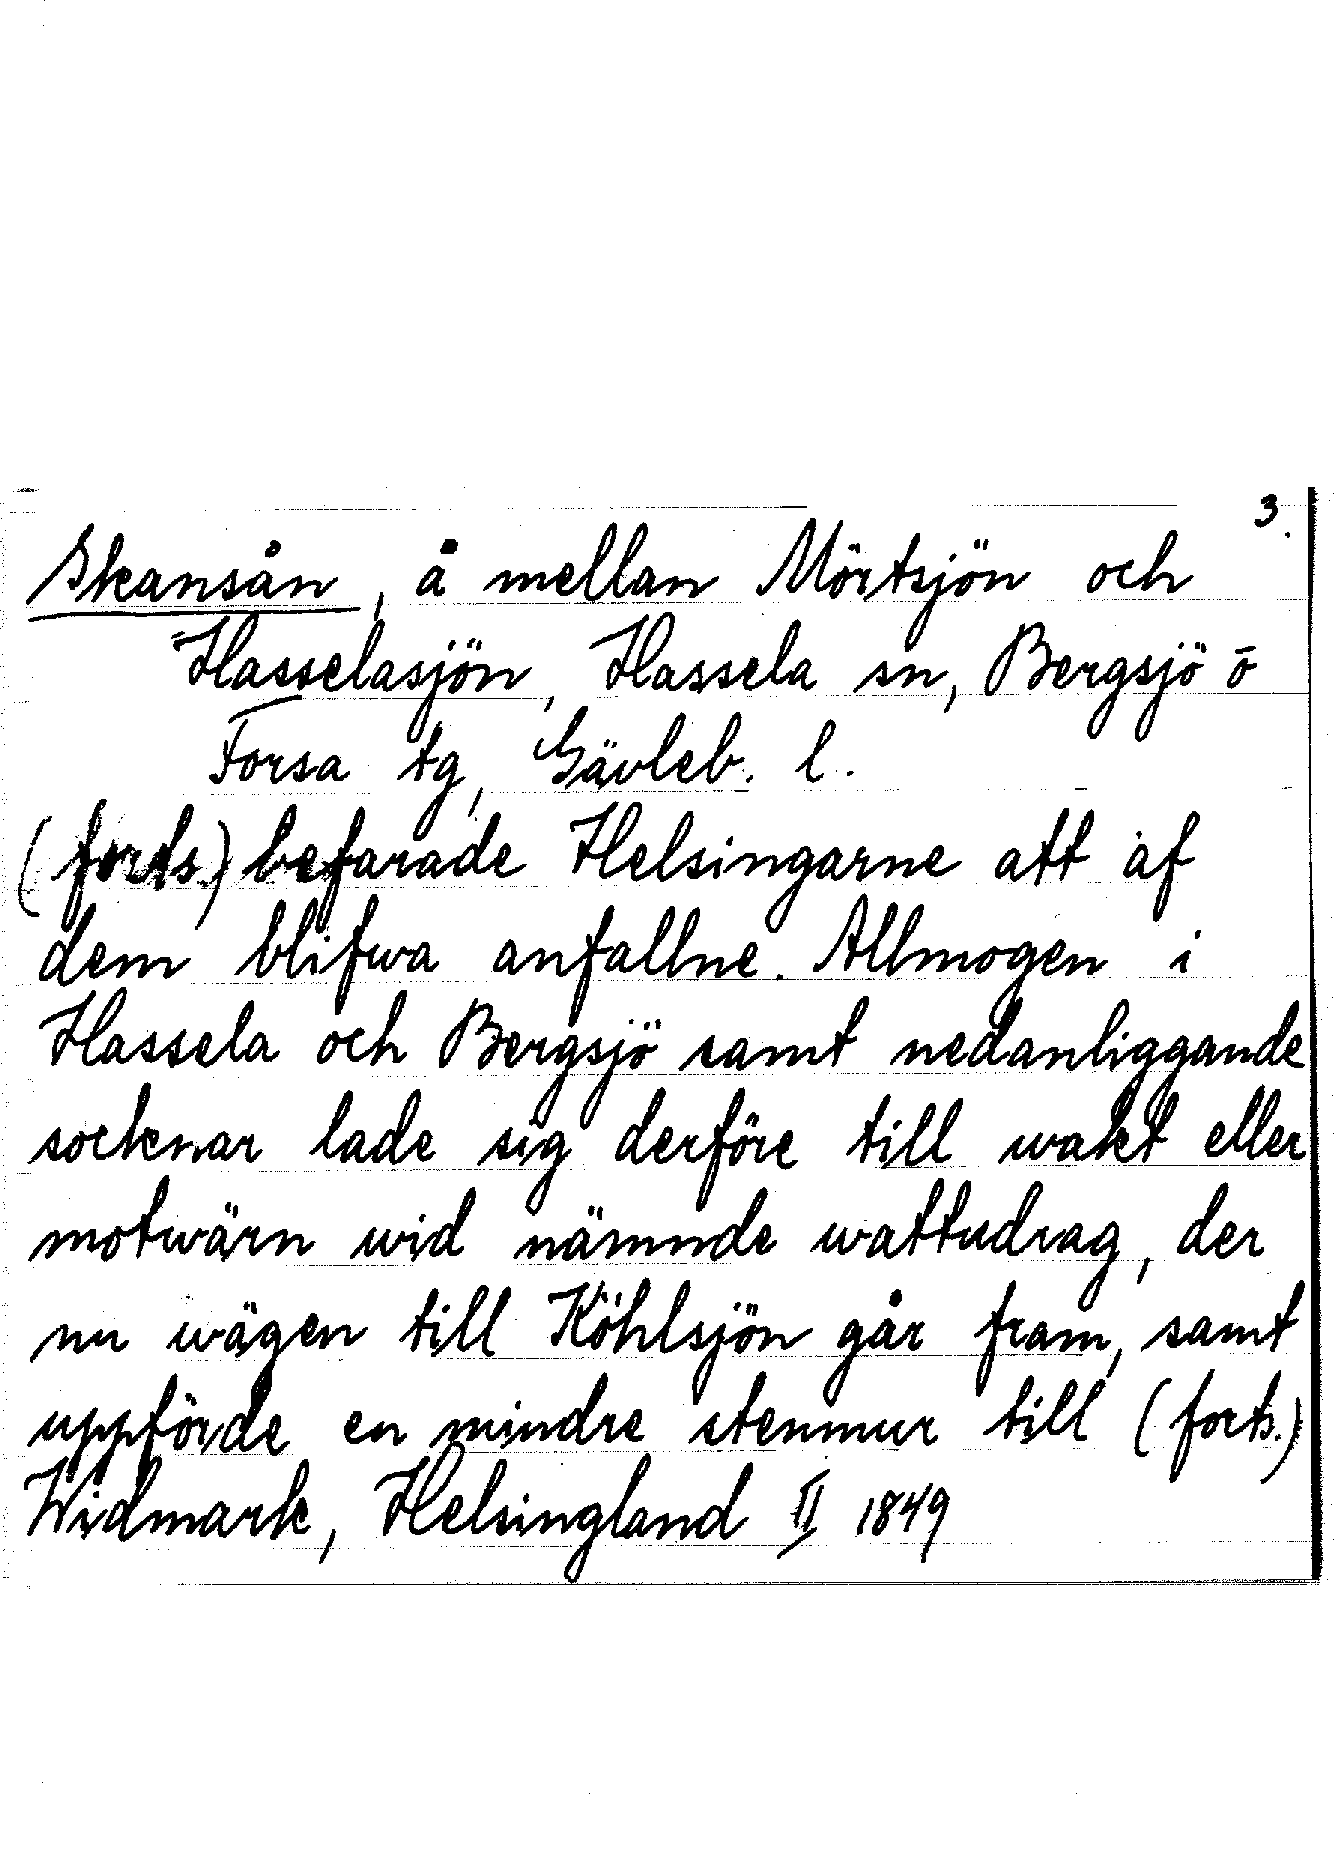 3.
Skansån, å mellan Mörtsjön och
Hasselasjön, Hassela sn, Bergsjö o
Forsa tg, Gävleb. l.
(forts.) befarade Helsingarne att af
dem blifwa anfallne. Allmogen i
Hassela och Bergsjö samt nedanliggande
socknar lade sig derföre till wakt eller
motwärn wid nämnde wattudrag, der
nu wägen till Köhlsjön går fram, samt
uppförde en mindre stenmur till (forts.)
Widmark, Helsingland II 1849